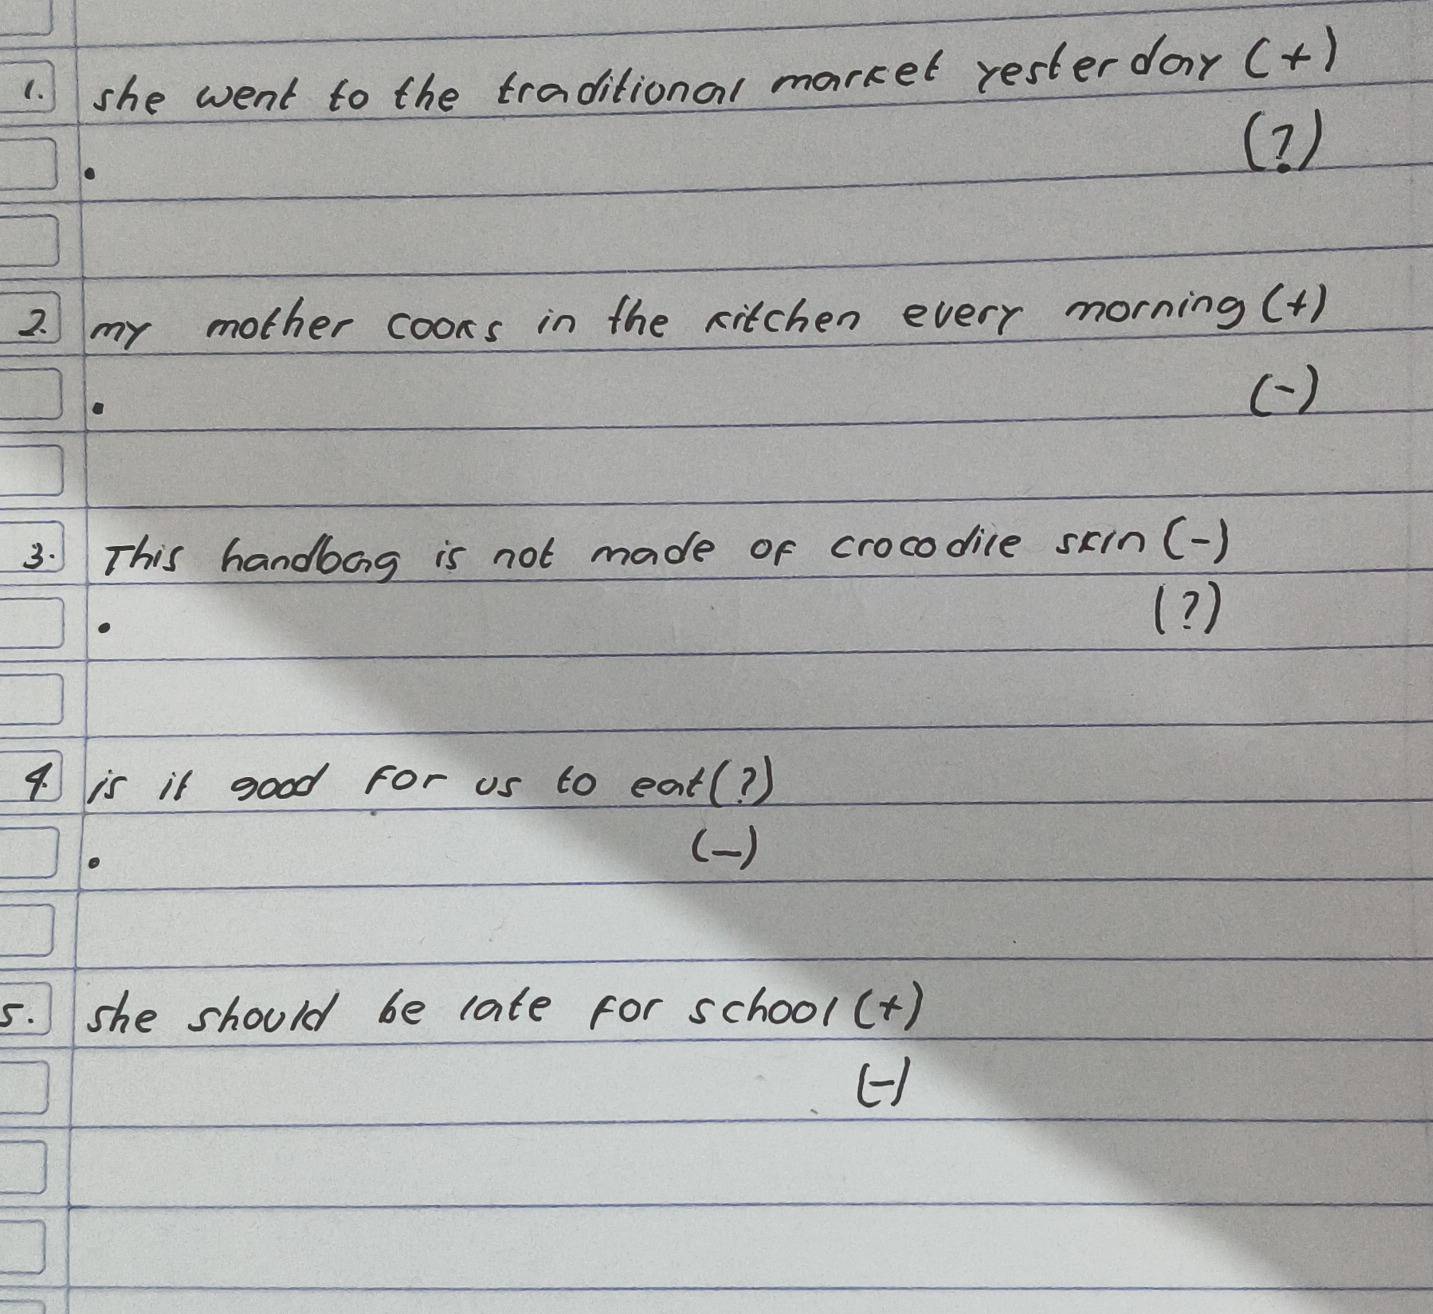 1. she went to the traditional market yesterday (+)
• (?)
2. my mother cooks in the kitchen every morning (+)
• (-)
3. This handbag is not made of crocodile skin (-)
• (?)
4. is it good for us to eat (?)
• (-)
5. she should be late for school (+)
(-)